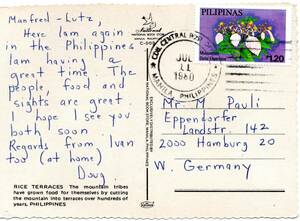 Manfred - Lutz,
Here I am again
in the Philippines
I am having a
great time. The
people, food and
sights are great
I hope I see you
both soon
Regards from Ivan
too (at home)
Doug
RICE TERRACES The mountain tribes
have grown food for themselves by cutting
the mountain into terraces over hundreds of
years. PHILIPPINES
National
NATIONAL BOOK STORE
PILIPINAS
120
JUL
11
1980
MANILA, PHILIPPINES
Mr. M Pauli
Eppendorfer
Landstr. 142
2000 Hamburg 20
W. Germany